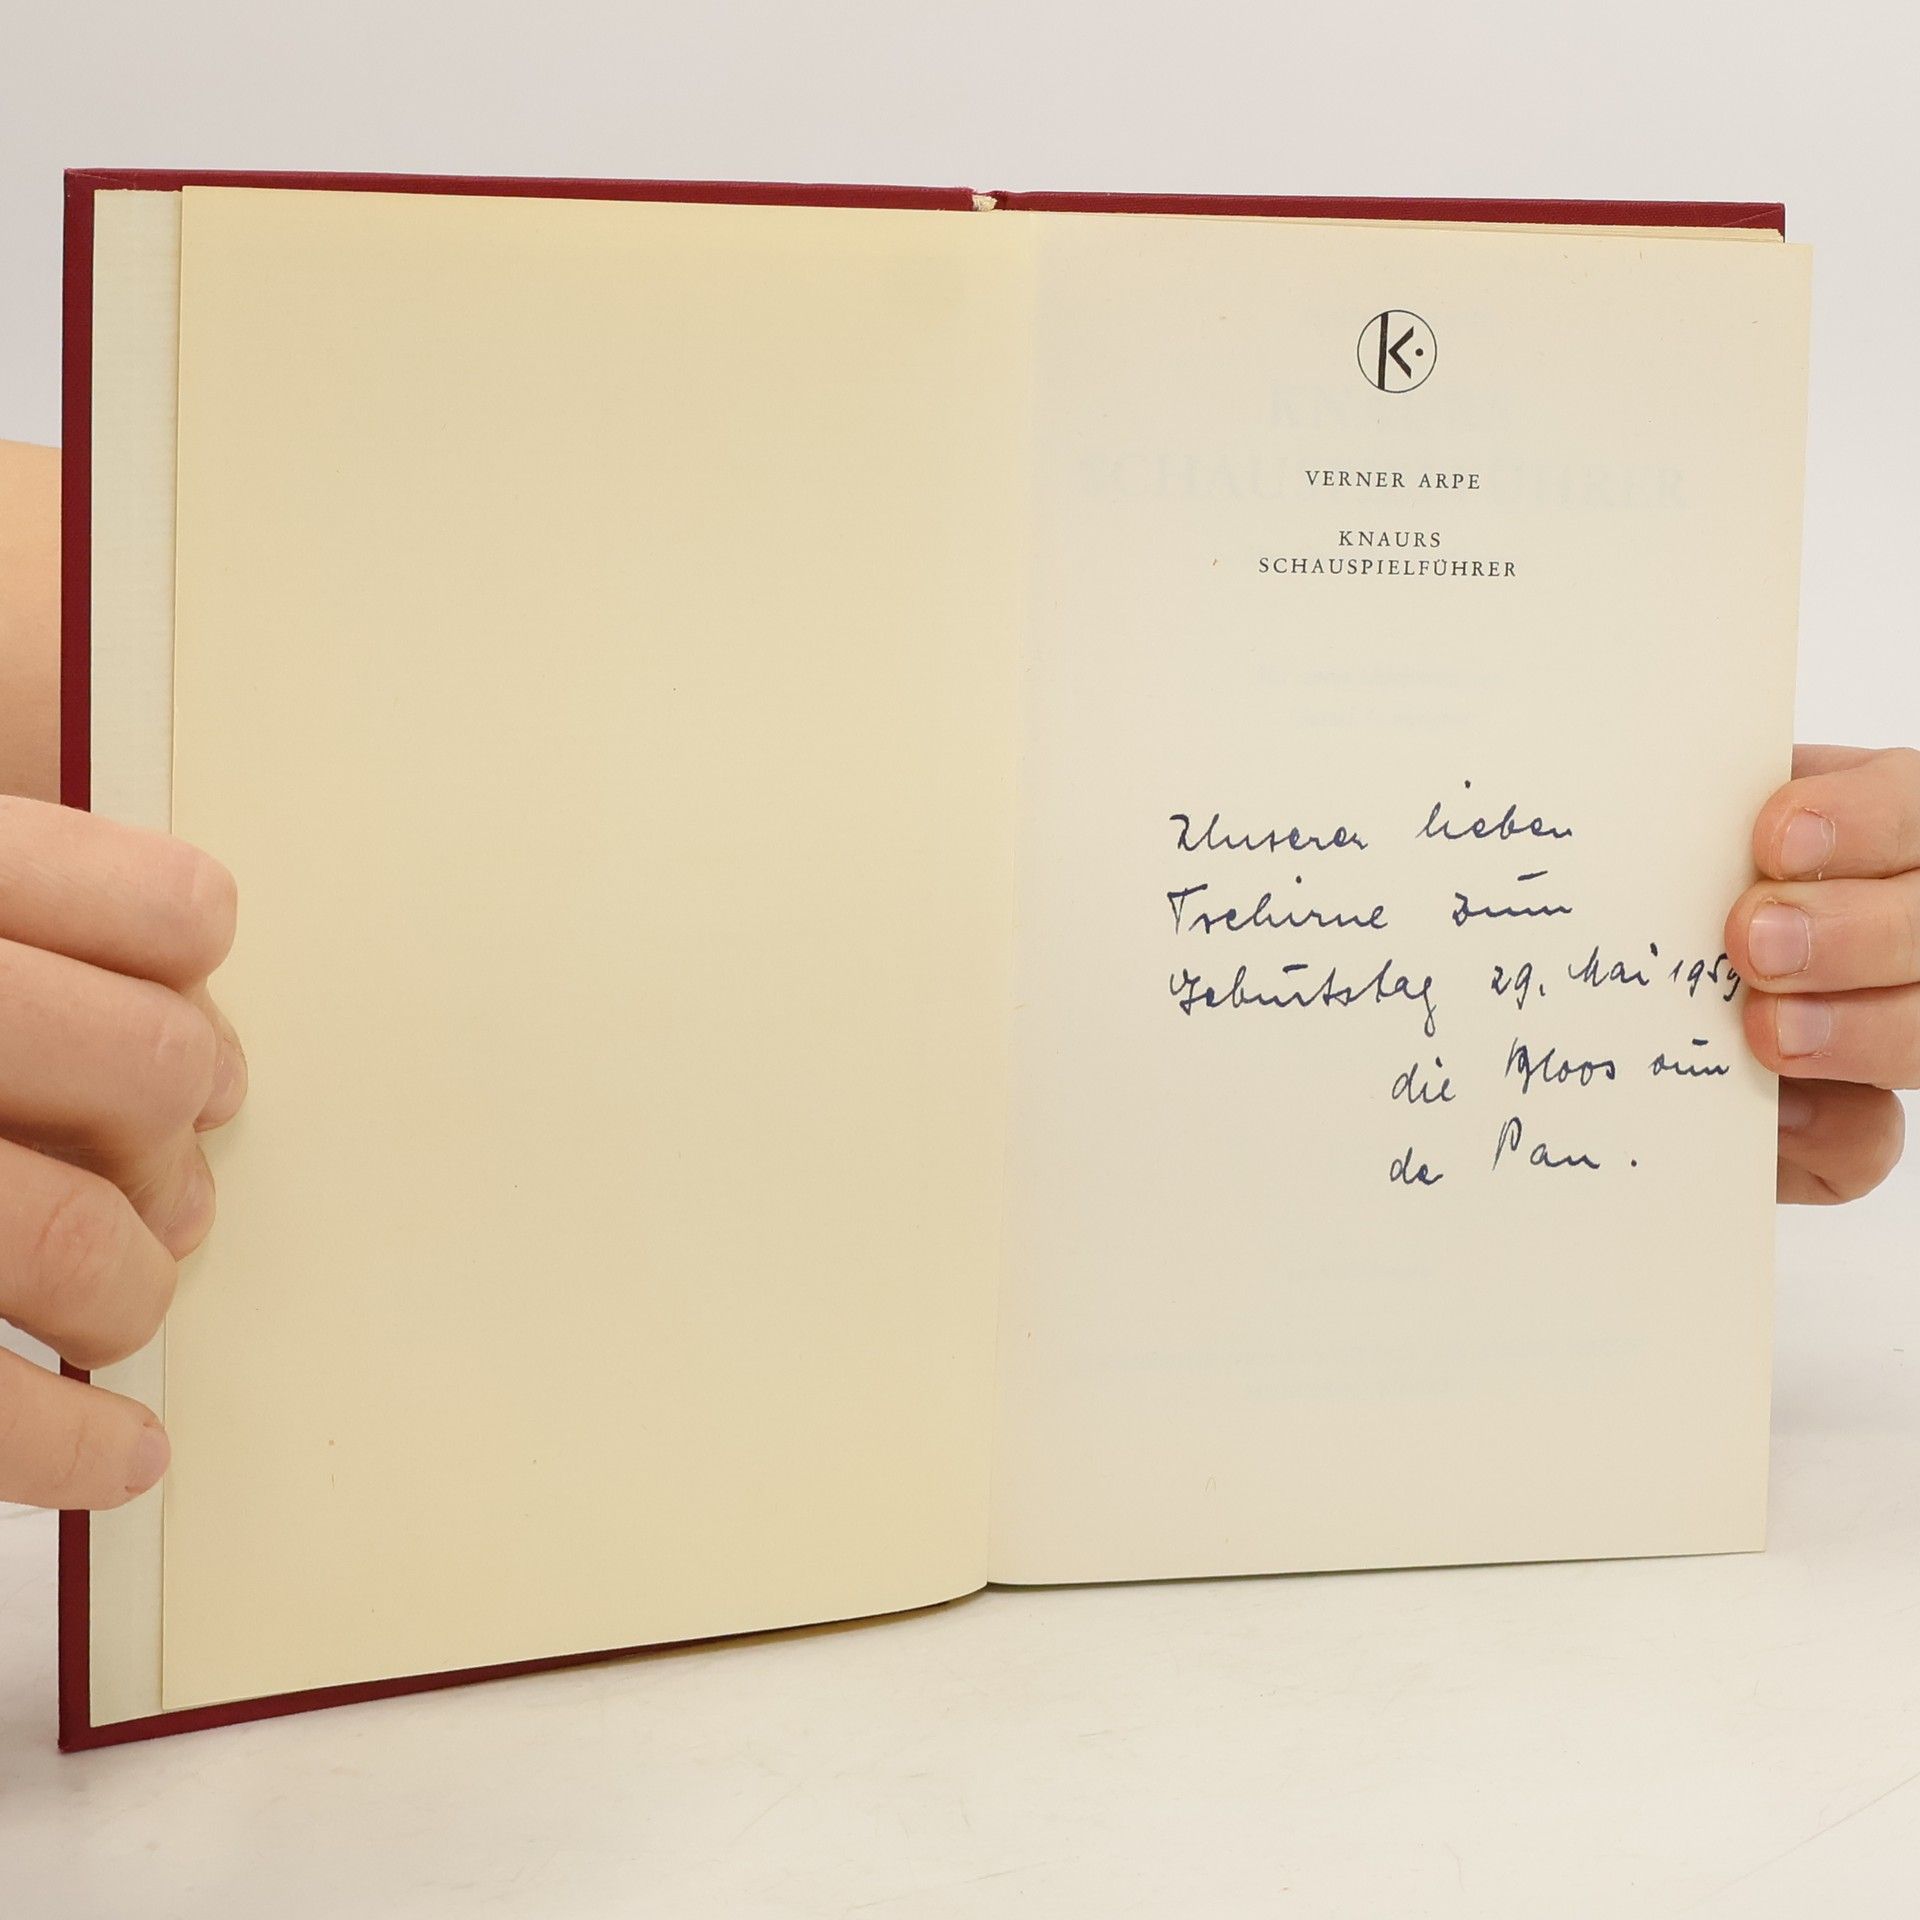 K.
VERNER ARPE
KNAURS
SCHAUSPIELFÜHRER
Unserer lieben
Tschirne zum
Geburtstag 29. Mai 1959
die
Pan.